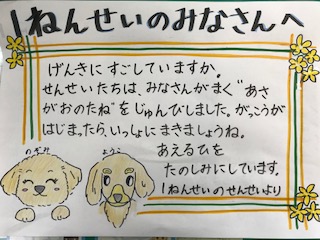 1ねんせいのみなさんへ
げんきにすごしていますか。
せんせいたちは、みなさんがまく“あさ
がおのたね”をじゅんびしました。がっこうが
はじまったら、いっしょにまきましょうね。
あえるひを
たのしみにしています。
1ねんせいのせんせいより
のぞみ
ようこ